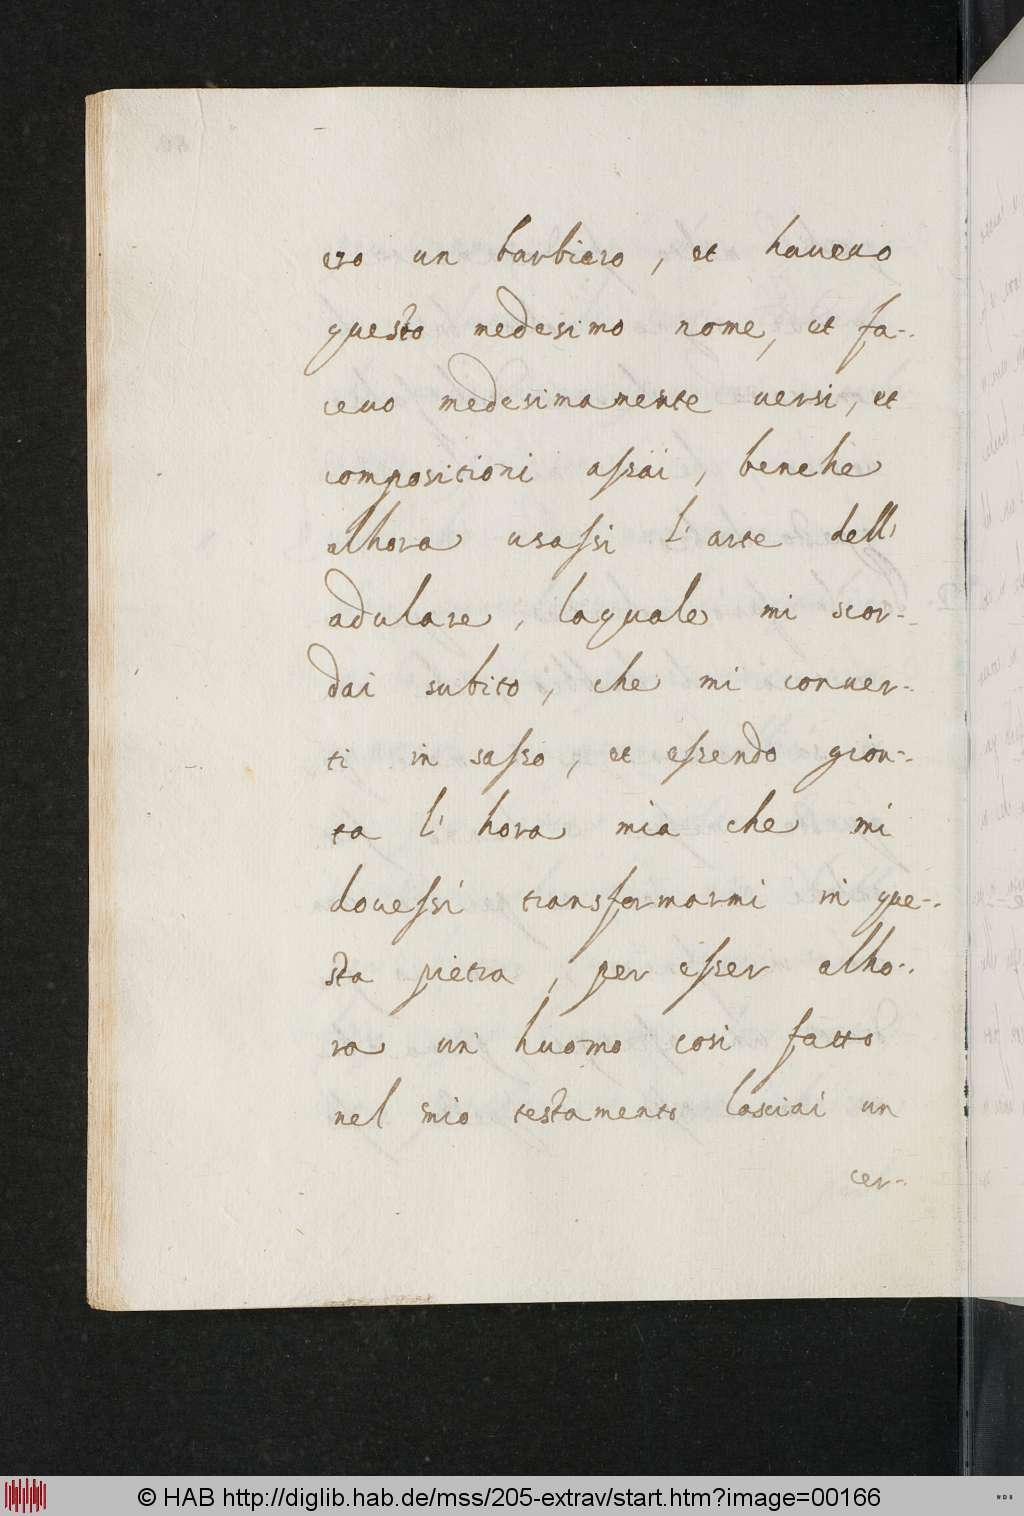 ero un barbiero, et haueuo
questo medesimo nome, et fa-
ceuo medesimamente uersi, et
compositioni assai, benche
alhora usassi l'arte dell'
adulare, laquale mi scor-
dai subito, che mi conuer-
ti in sasso, et essendo gion-
ta l'hora mia che mi
douessi transformarmi in que-
sta pietra, per esser alho-
ra un huomo cosi fatto
nel mio testamento lasciai un
cer-
© HAB http://diglib.hab.de/mss/205-extrav/start.htm?image=00166